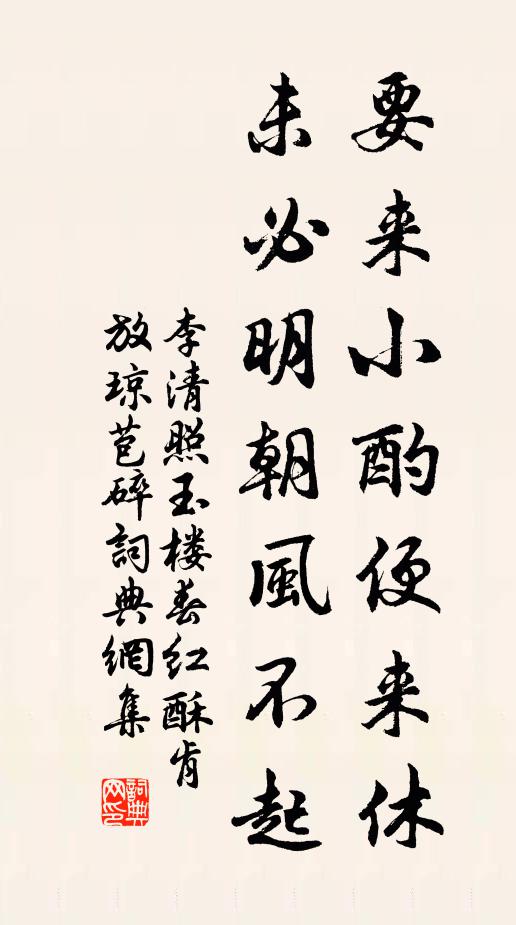 要来小酌便来休
未必明朝風不起
李清照玉楼春红酥肯
放琼苞碎詞典網集
詞典网印